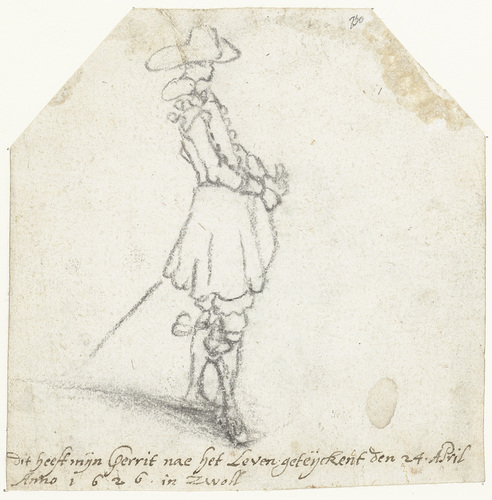 730
Dit heeft mijn Gerrit nae het Leven geteijckent den 24. April
Anno 1626. in Zwoll